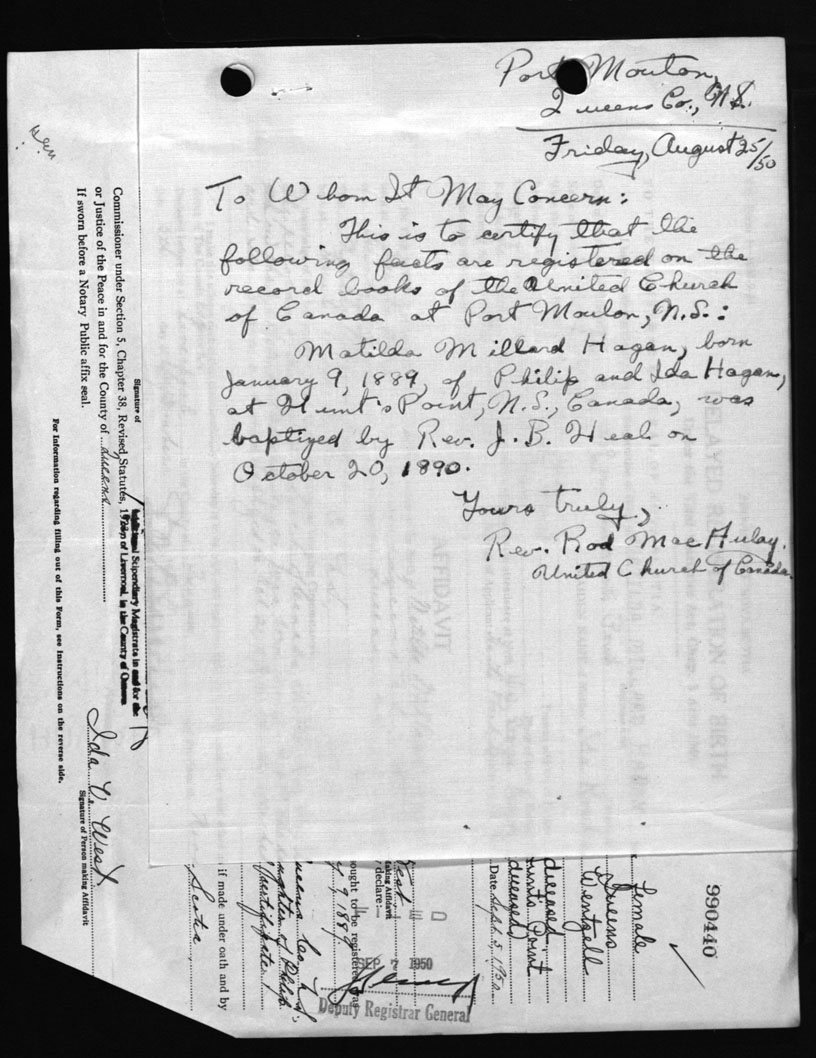 Port Mouton,
Queens Co., N.S.
Friday, August 25/50
To Whom It May Concern:
This is to certify that the
following facts are registered on the
record books of the United Church
of Canada at Port Mouton, N.S.:
Matilda Millard Hagan, born
January 9, 1889, of Philip and Ida Hagan,
at Hunt's Point, N.S., Canada, was
baptized by Rev. J. B. Heal on
October 20, 1890.
Yours truly,
Rev. Rod MacAulay.
United Church of Canada.
Signature of
Commissioner under Section 5, Chapter 38, Revised Statutes, 19
or Justice of the Peace in and for the County of Queens
If sworn before a Notary Public affix seal.
Stipendiary Magistrate in and for the
Town of Liverpool, in the County of Queens
For Information regarding filling out of this Form, see Instructions on the reverse side.
Ida V. West
Signature of Person making Affidavit
990440
Female
Queens
Wentzell
deceased
Hunts Point
deceased
Date Sept. 5, 1950
West
making Affidavit
declare:—
ought to be registered was
y 9 1889
Queens Co. N.S.
ughter of Philip
certificate
if made under oath and by
Scotia
SEP 1950
Deputy Registrar General
AFFIDAVIT
DELAYED REGISTRATION OF BIRTH